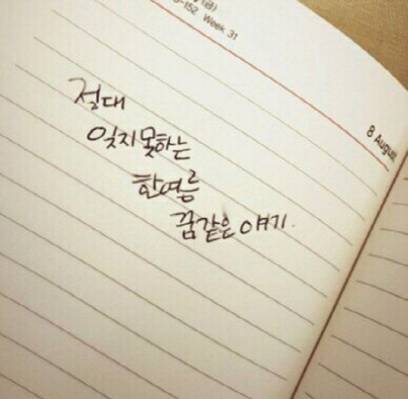 Week 31
8 August
절대
잊지못하는
한여름
꿈같은 얘기.